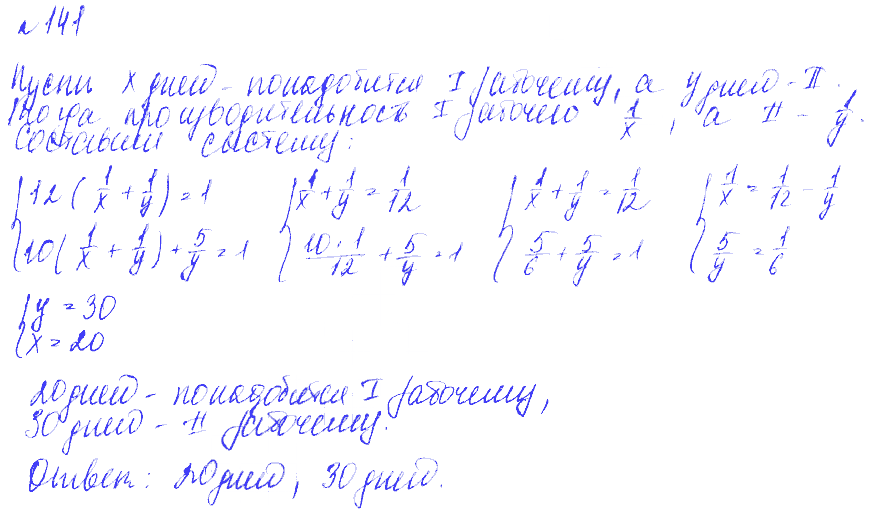 №141
Пусть x дней - понадобится I рабочему, а y дней - II.
Тогда производительность I рабочего 1/x, а II - 1/y.
Составим систему:
{ 12(1/x + 1/y) = 1 { 1/x + 1/y = 1/12 { 1/x + 1/y = 1/12 { 1/x = 1/12 - 1/y
{ 10(1/x + 1/y) + 5/y = 1 { 10·1/12 + 5/y = 1 { 5/6 + 5/y = 1 { 5/y = 1/6
{ y = 30
{ x = 20
20 дней - понадобится I рабочему,
30 дней - II рабочему.
Ответ: 20 дней, 30 дней.